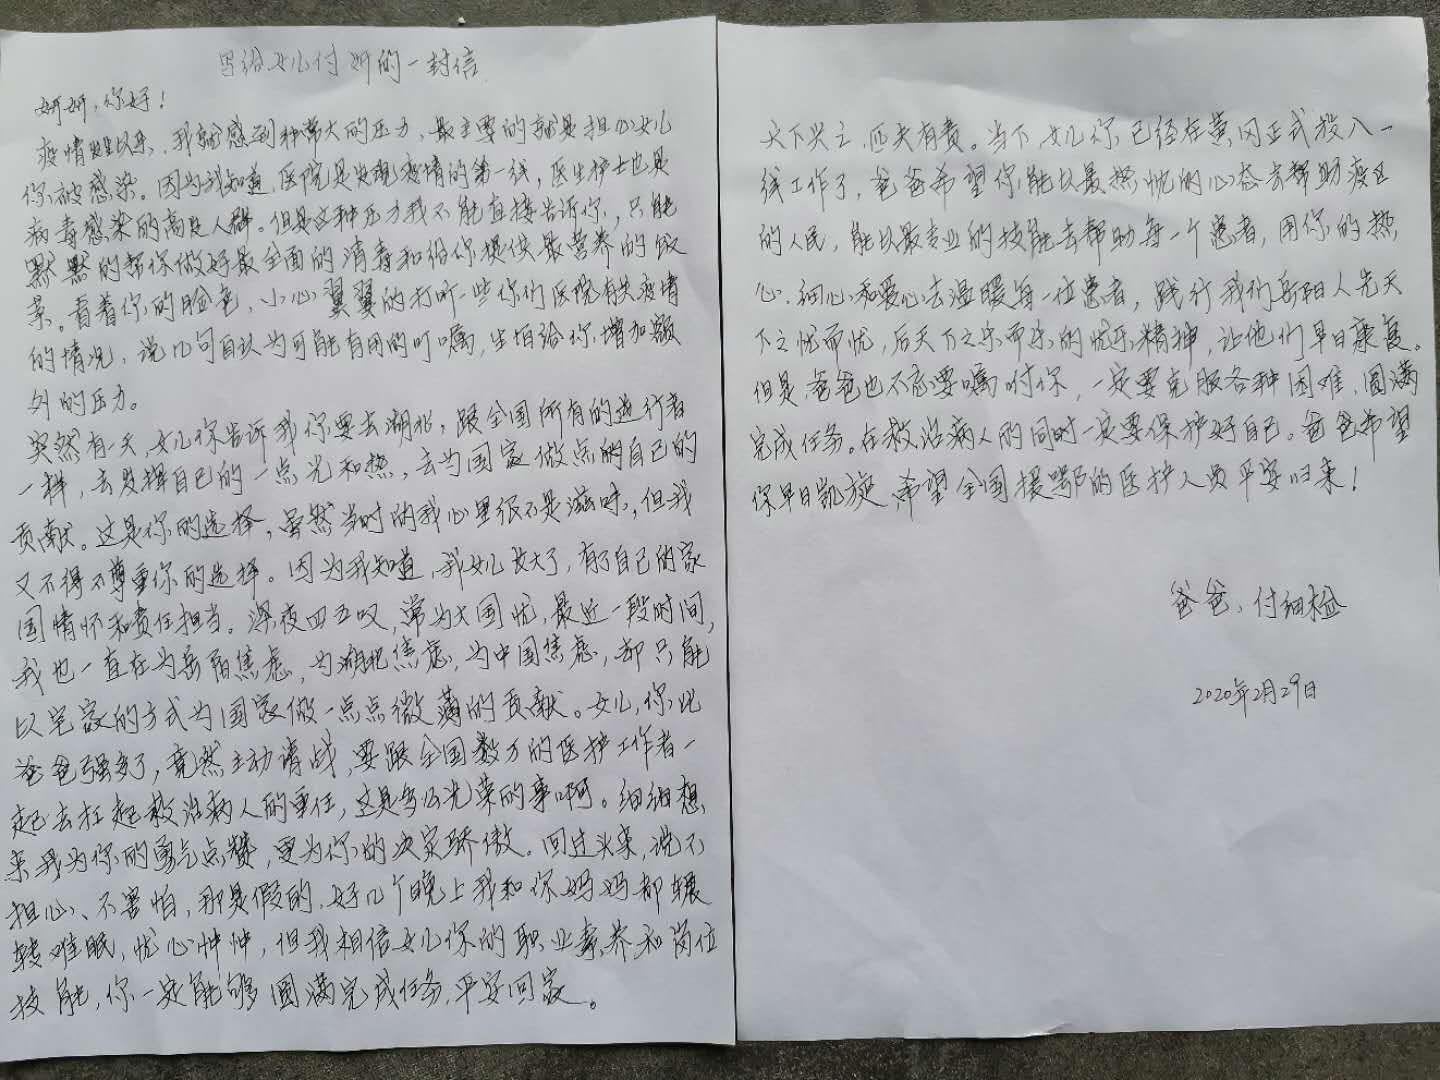 写给女儿付妍的一封信
妍妍，你好！
疫情发生以来，我就感到种莫大的压力，最主要的就是担心女儿
你被感染。因为我知道，医院是发现疫情的第一线，医生护士也是
病毒感染的高危人群。但是这种压力我不能直接告诉你，只能
默默的帮你做好最全面的消毒和给你提供最营养的饭
菜。看着你的脸色，小心翼翼的打听一些你们医院有关疫情
的情况，说几句自认为可能有用的叮嘱，生怕给你增加额
外的压力。
突然有一天，女儿你告诉我你要去湖北，跟全国所有的逆行者
一样，去发挥自己的一点光和热，去为国家做点的自己的
贡献。这是你的选择，虽然当时的我心里很不是滋味，但我
又不得不尊重你的选择。因为我知道，我女儿长大了，有了自己的家
国情怀和责任担当。深夜四五叹，常为大国忧，最近一段时间，
我也一直在为岳阳焦虑，为湖北焦虑，为中国焦虑，却只能
以宅家的方式为国家做一点点微薄的贡献。女儿，你比
爸爸强多了，竟然主动请战，要跟全国数万的医护工作者一
起去扛起救治病人的重任，这是多么光荣的事啊。细细想
来我为你的勇气点赞，更为你的决定骄傲。回过头来，说不
担心、不害怕，那是假的，好几个晚上我和你妈妈都辗
转难眠，忧心忡忡，但我相信女儿你的职业素养和岗位
技能，你一定能够圆满完成任务，平安回家。
天下兴亡，匹夫有责。当下，女儿你已经在黄冈正式投入一
线工作了，爸爸希望你能以最热忱的心态去帮助疫区
的人民，能以最专业的技能去帮助每一个患者，用你的热
心、细心和爱心去温暖每一位患者，践行我们岳阳人先天
下之忧而忧，后天下之乐而乐的忧乐精神，让他们早日康复。
但是，爸爸也不忘要嘱咐你，一定要克服各种困难，圆满
完成任务。在救治病人的同时一定要保护好自己。爸爸希望
你早日凯旋，希望全国援鄂的医护人员平安归来！
爸爸：付细
2020年2月29日